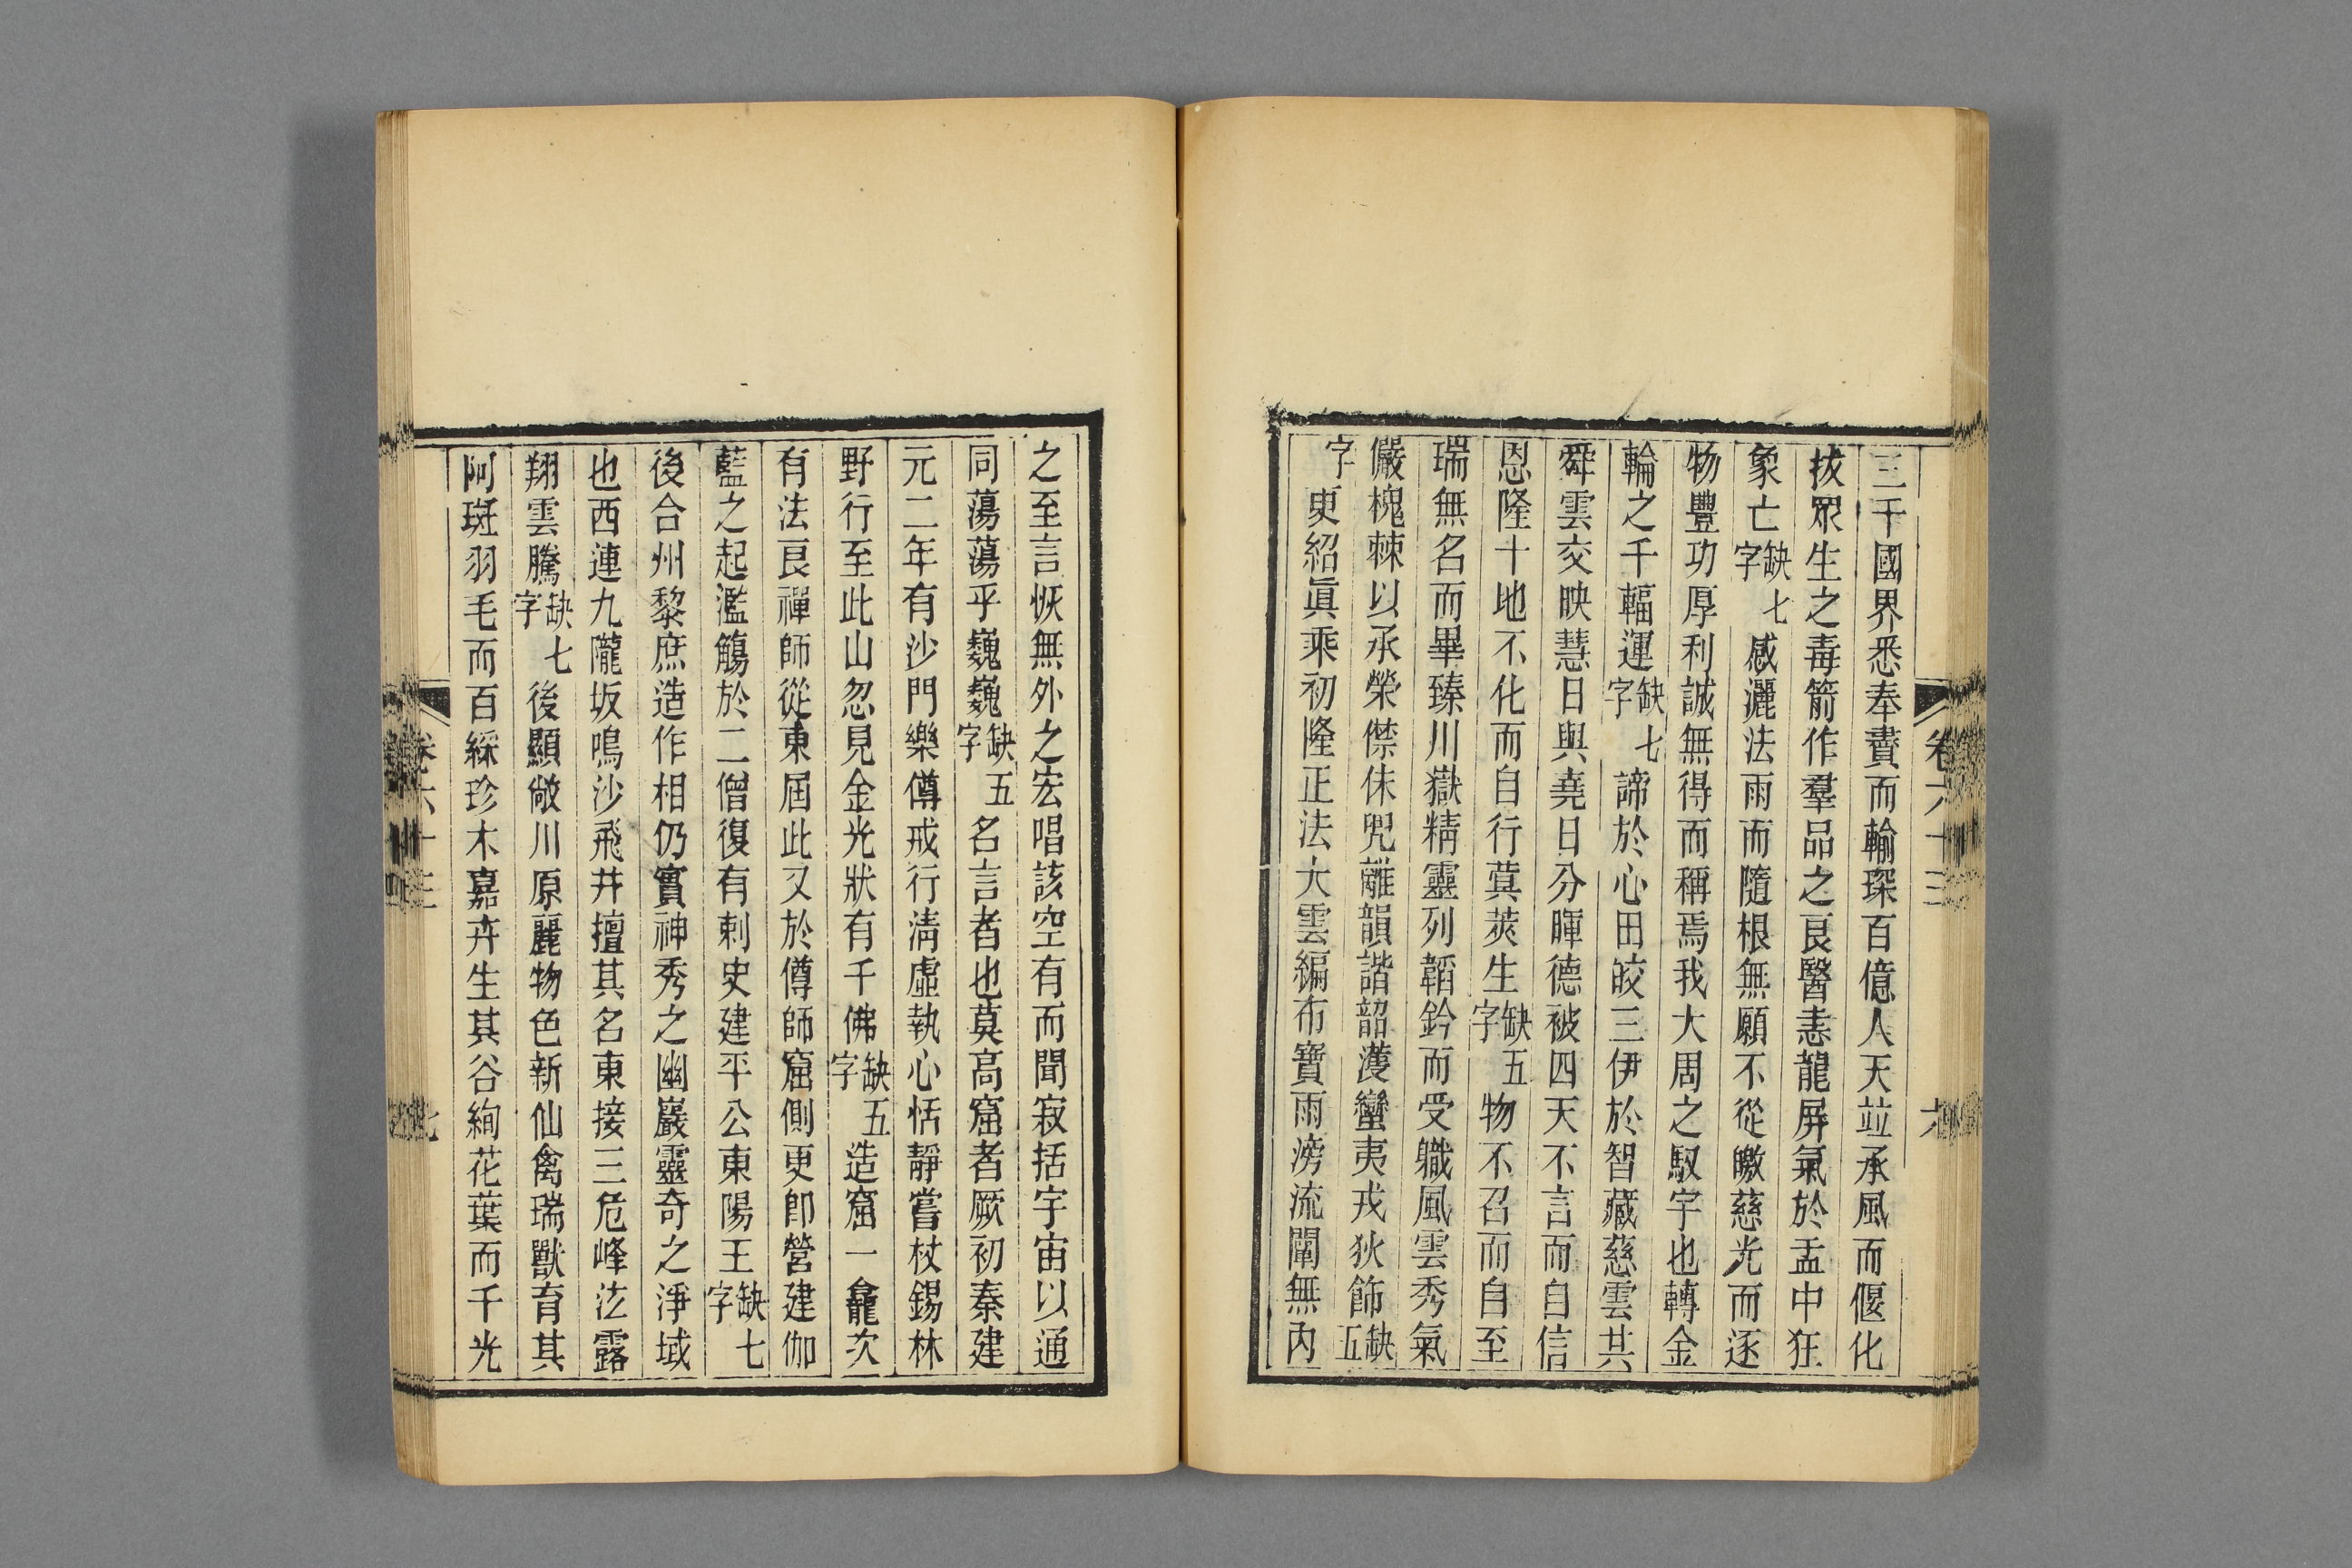 三千國界悉奉賮而輸琛百億人天並承風而偃化
拔眾生之毒箭作羣品之良醫恚龍屏氣於盂中狂
象亡缺七字感灑法雨而隨根無願不從曒慈光而逐
物豐功厚利誠無得而稱焉我大周之馭宇也轉金
輪之千輻運缺七字諦於心田皎三伊於智藏慈雲共
舜雲交映慧日與堯日分暉德被四天不言而自信
恩隆十地不化而自行蓂莢生缺五字物不召而自至
瑞無名而畢臻川嶽精靈列韜鈐而受職風雲秀氣
儼槐棘以承榮傑侏兜離韻諧韶濩蠻夷戎狄飾缺五
字更紹眞乘初隆正法大雲編布寶雨滂流闡無內
卷六十三
六
之至言恢無外之宏唱該空有而聞寂括宇宙以通
同蕩蕩乎巍巍缺五字名言者也莫高窟者厥初秦建
元二年有沙門樂僔戒行清虛執心恬靜嘗杖錫林
野行至此山忽見金光狀有千佛缺五字造窟一龕次
有法良禪師從東屆此又於僔師窟側更卽營建伽
藍之起濫觴於二僧復有刺史建平公東陽王缺七字
後合州黎庶造作相仍實神秀之幽巖靈奇之淨域
也西連九隴坂鳴沙飛井擅其名東接三危峰泫露
翔雲騰缺七字後顯敞川原麗物色新仙禽瑞獸育其
阿斑羽毛而百綵珍木嘉卉生其谷絢花葉而千光
卷六十三
七